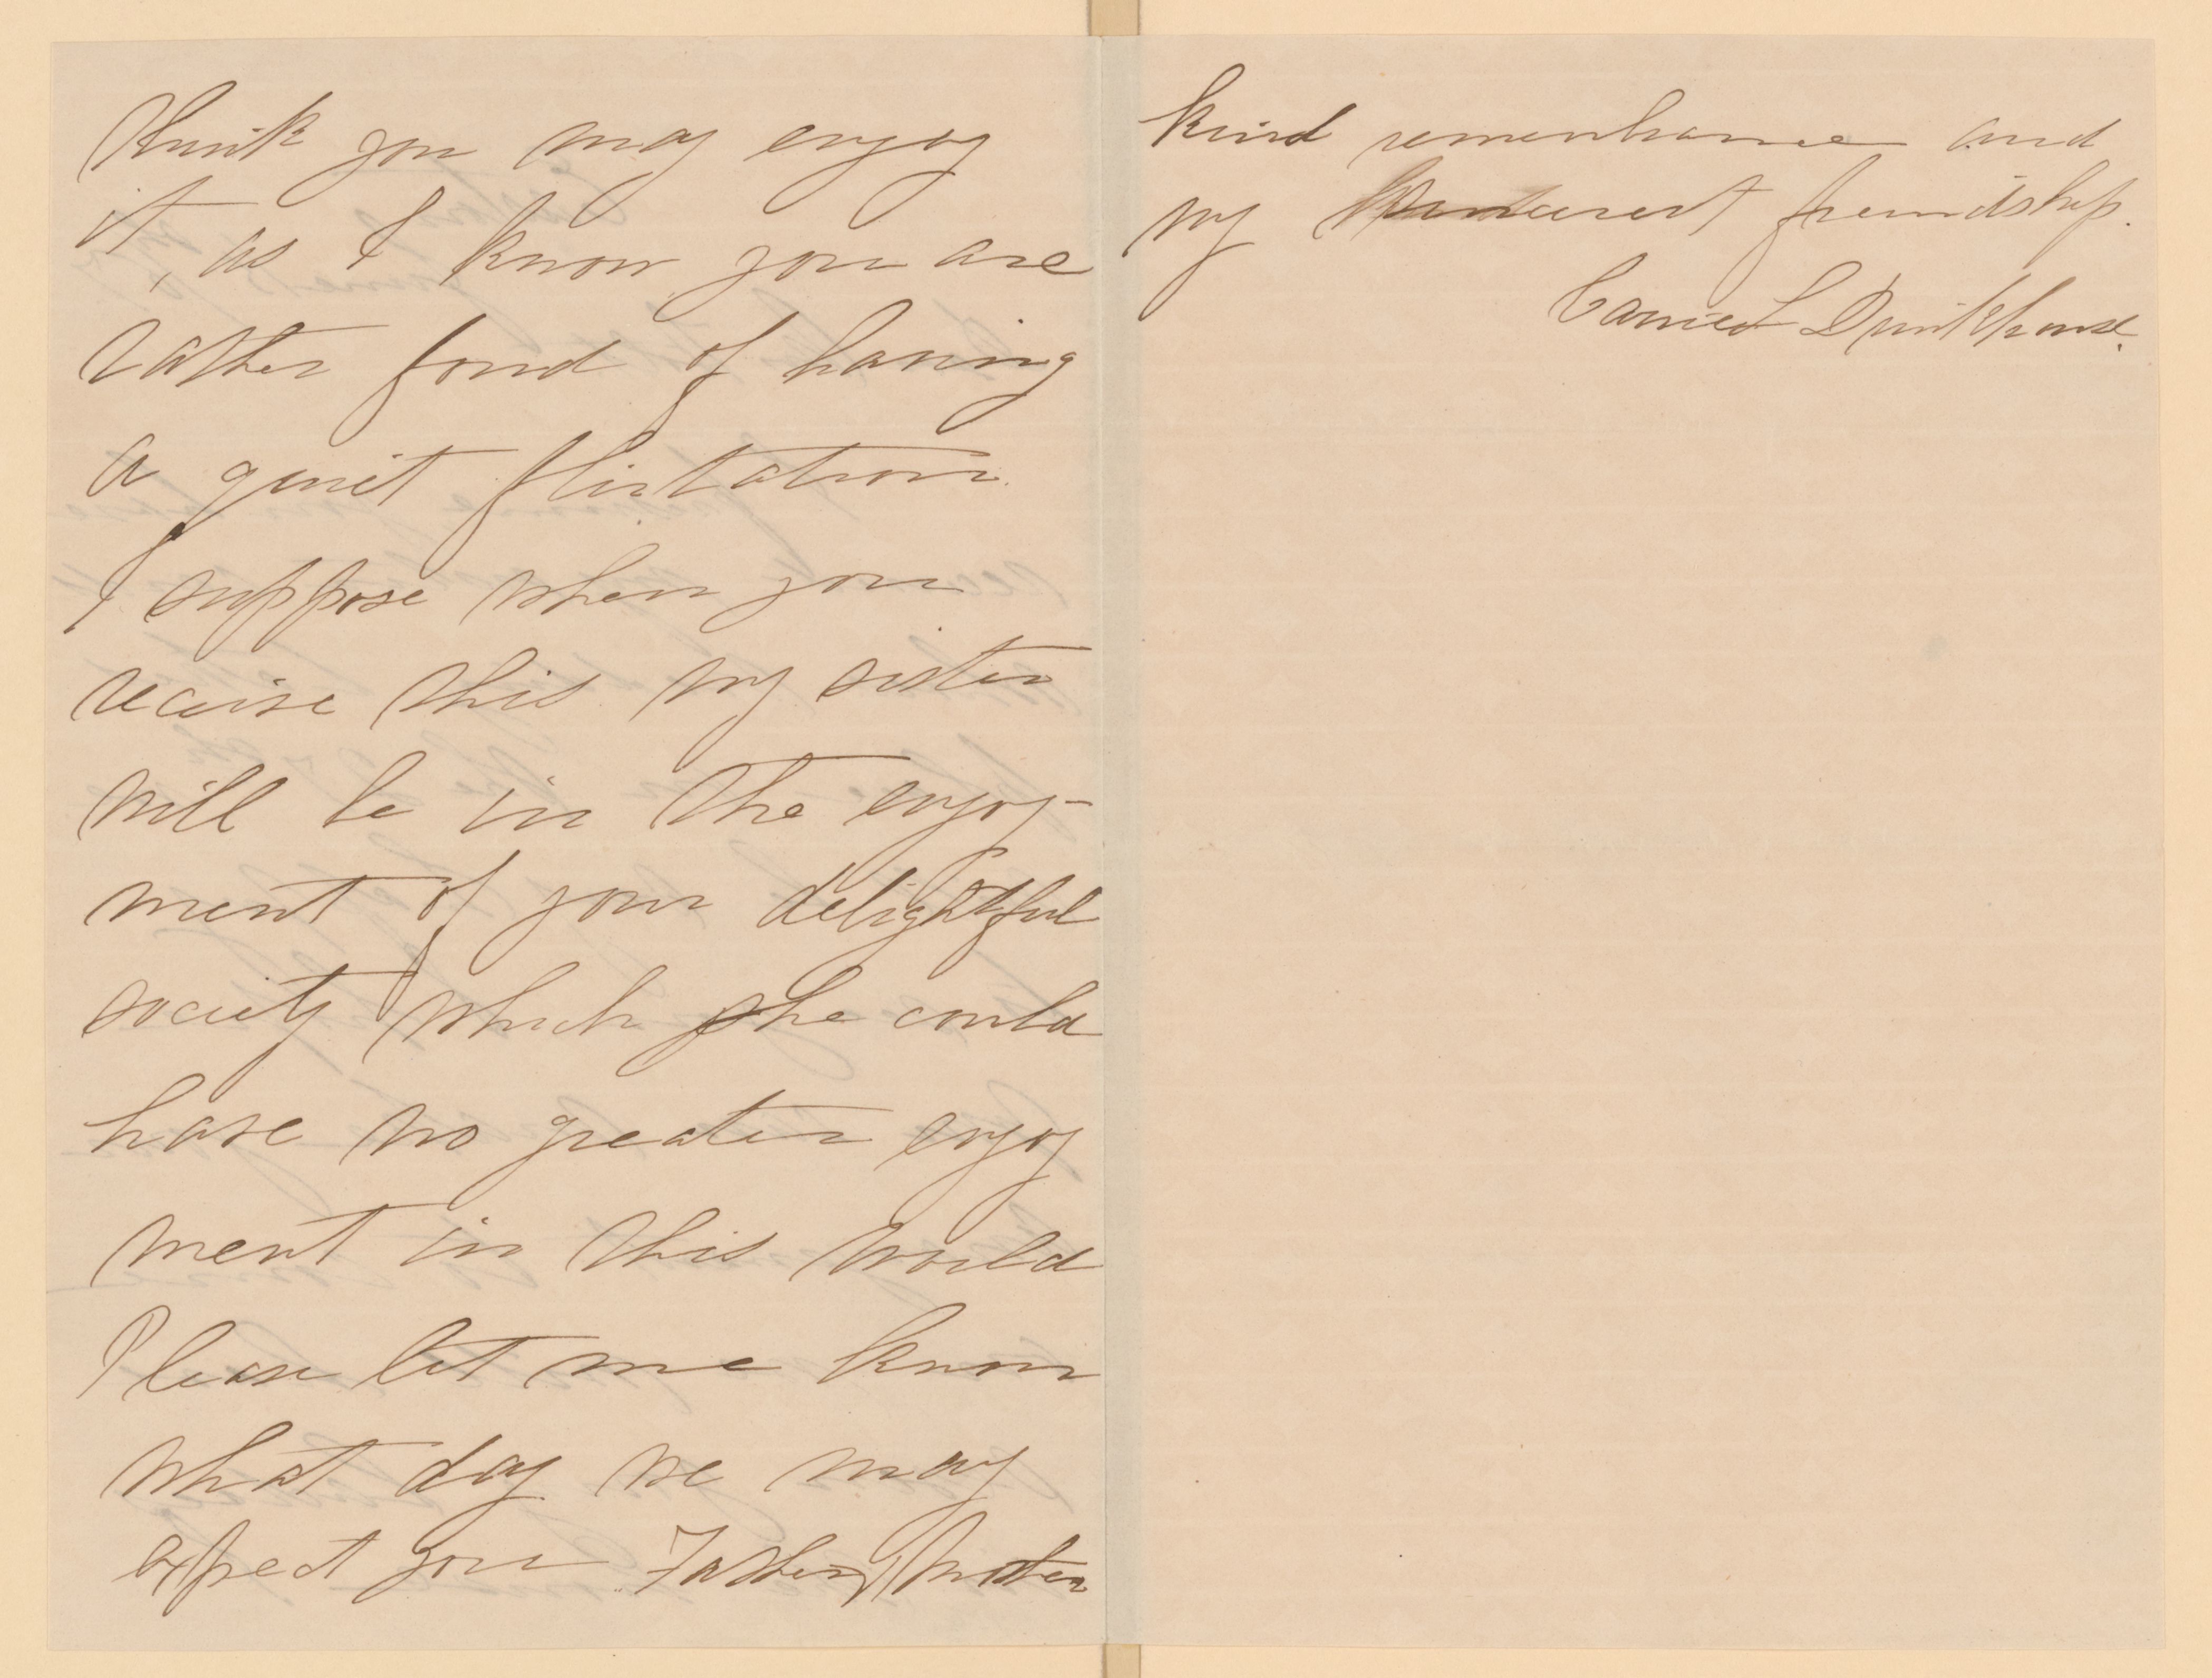 think you may enjoy
it, as I know you are
rather fond of having
a quiet flirtation.
I suppose when you
recieve this my sister
will be in the enjoy-
ment of your delightful
society which she could
have no greater enjoy
ment in this world
Please let me know
what day we may
expect you Father, Mother
kind remembrance and
my friendship.
Carrie L Drinkhouse.